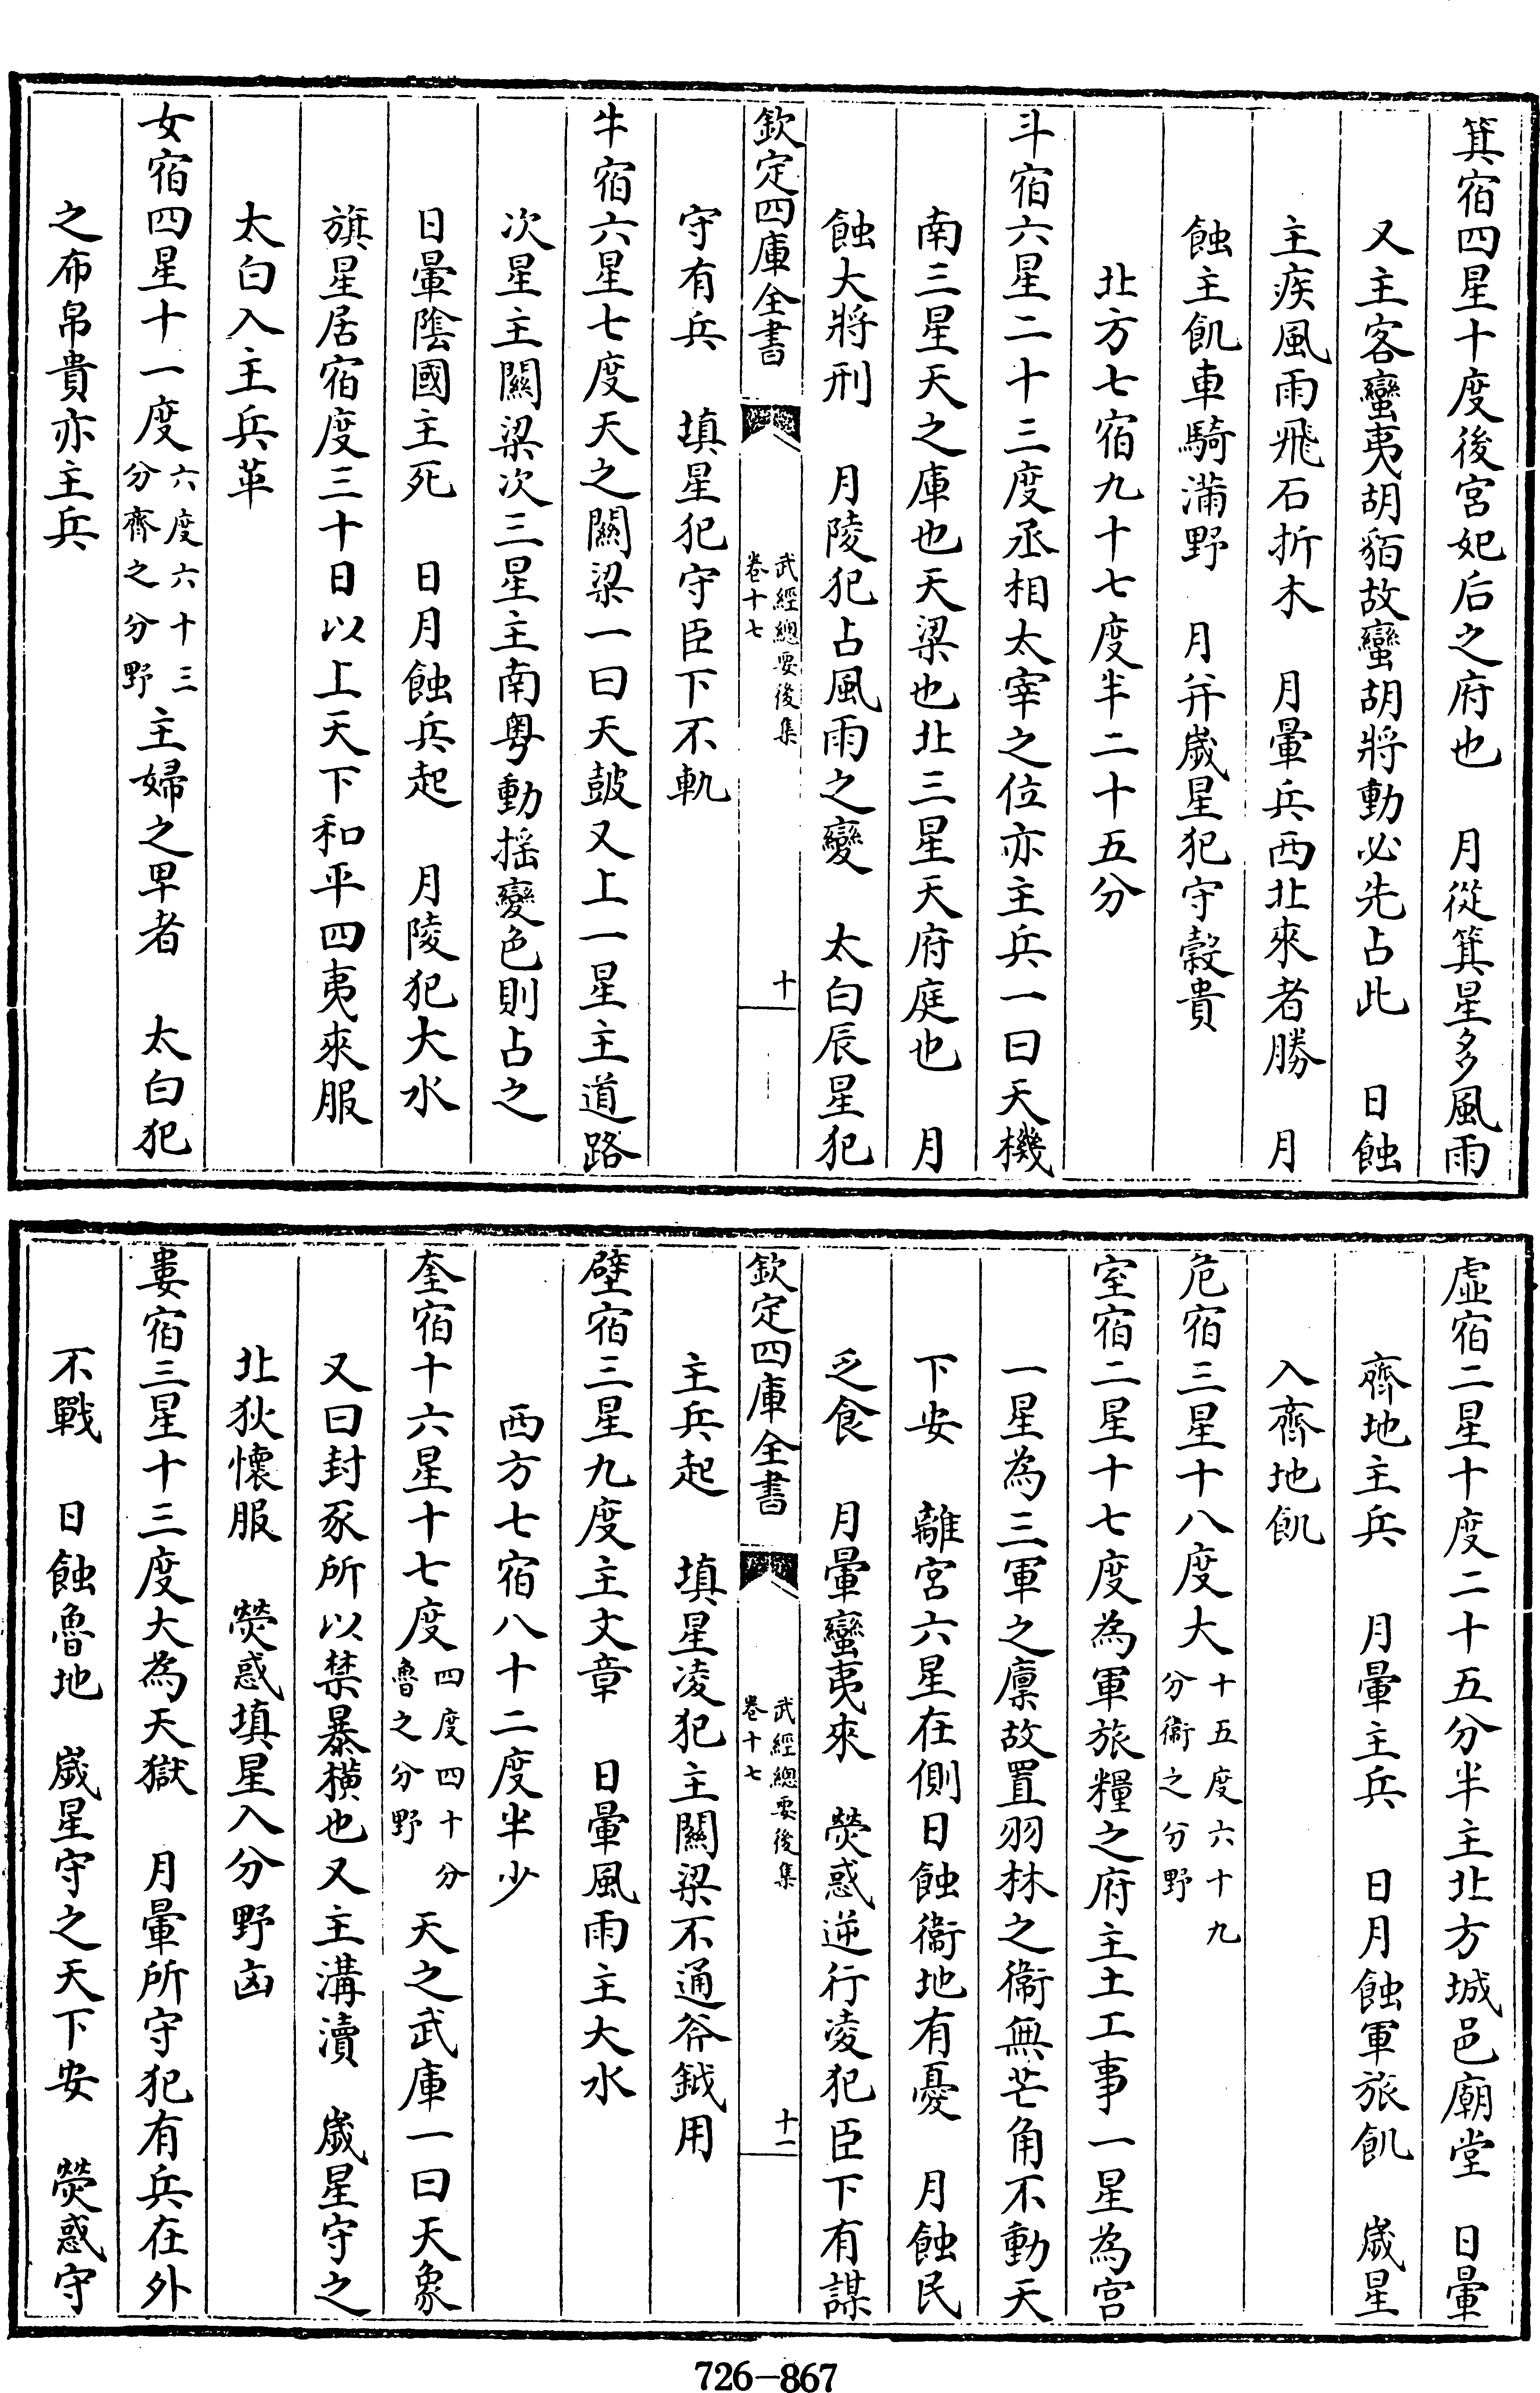 箕宿四星十度後宮妃后之府也　月從箕星多風雨
又主客蠻夷胡貊故蠻胡將動必先占此　日蝕
主疾風雨飛石折木　月暈兵西北來者勝　月
蝕主飢車騎滿野　月并歲星犯守穀貴
北方七宿九十七度半二十五分
斗宿六星二十三度丞相太宰之位亦主兵一曰天機
南三星天之庫也天梁也北三星天府庭也　月
蝕大將刑　月陵犯占風雨之變　太白辰星犯
欽定四庫全書
武經總要後集
卷十七
十
守有兵　填星犯守臣下不軌
牛宿六星七度天之關梁一曰天鼓又上一星主道路
次星主關梁次三星主南粵動搖變色則占之
日暈陰國主死　日月蝕兵起　月陵犯大水
旗星居宿度三十日以上天下和平四夷來服
太白入主兵革
女宿四星十一度六度六十三分齊之分野主婦之卑者　太白犯
之布帛貴亦主兵
虛宿二星十度二十五分半主北方城邑廟堂　日暈
齊地主兵　月暈主兵　日月蝕軍旅飢　歲星
入齊地飢
危宿三星十八度大十五度六十九分衞之分野
室宿二星十七度為軍旅糧之府主土工事一星為宮
一星為三軍之廩故置羽林之衞無芒角不動天
下安　離宮六星在側日蝕衞地有憂　月蝕民
乏食　月暈蠻夷來　熒惑逆行凌犯臣下有謀
欽定四庫全書
武經總要後集
卷十七
十一
主兵起　填星凌犯主關梁不通斧鉞用
壁宿三星九度主文章　日暈風雨主大水
西方七宿八十二度半少
奎宿十六星十七度四度四十分魯之分野天之武庫一曰天象
又曰封豕所以禁暴橫也又主溝瀆　歲星守之
北狄懷服　熒惑填星入分野凶
婁宿三星十三度大為天獄　月暈所守犯有兵在外
不戰　日蝕魯地　歲星守之天下安　熒惑守
726-867